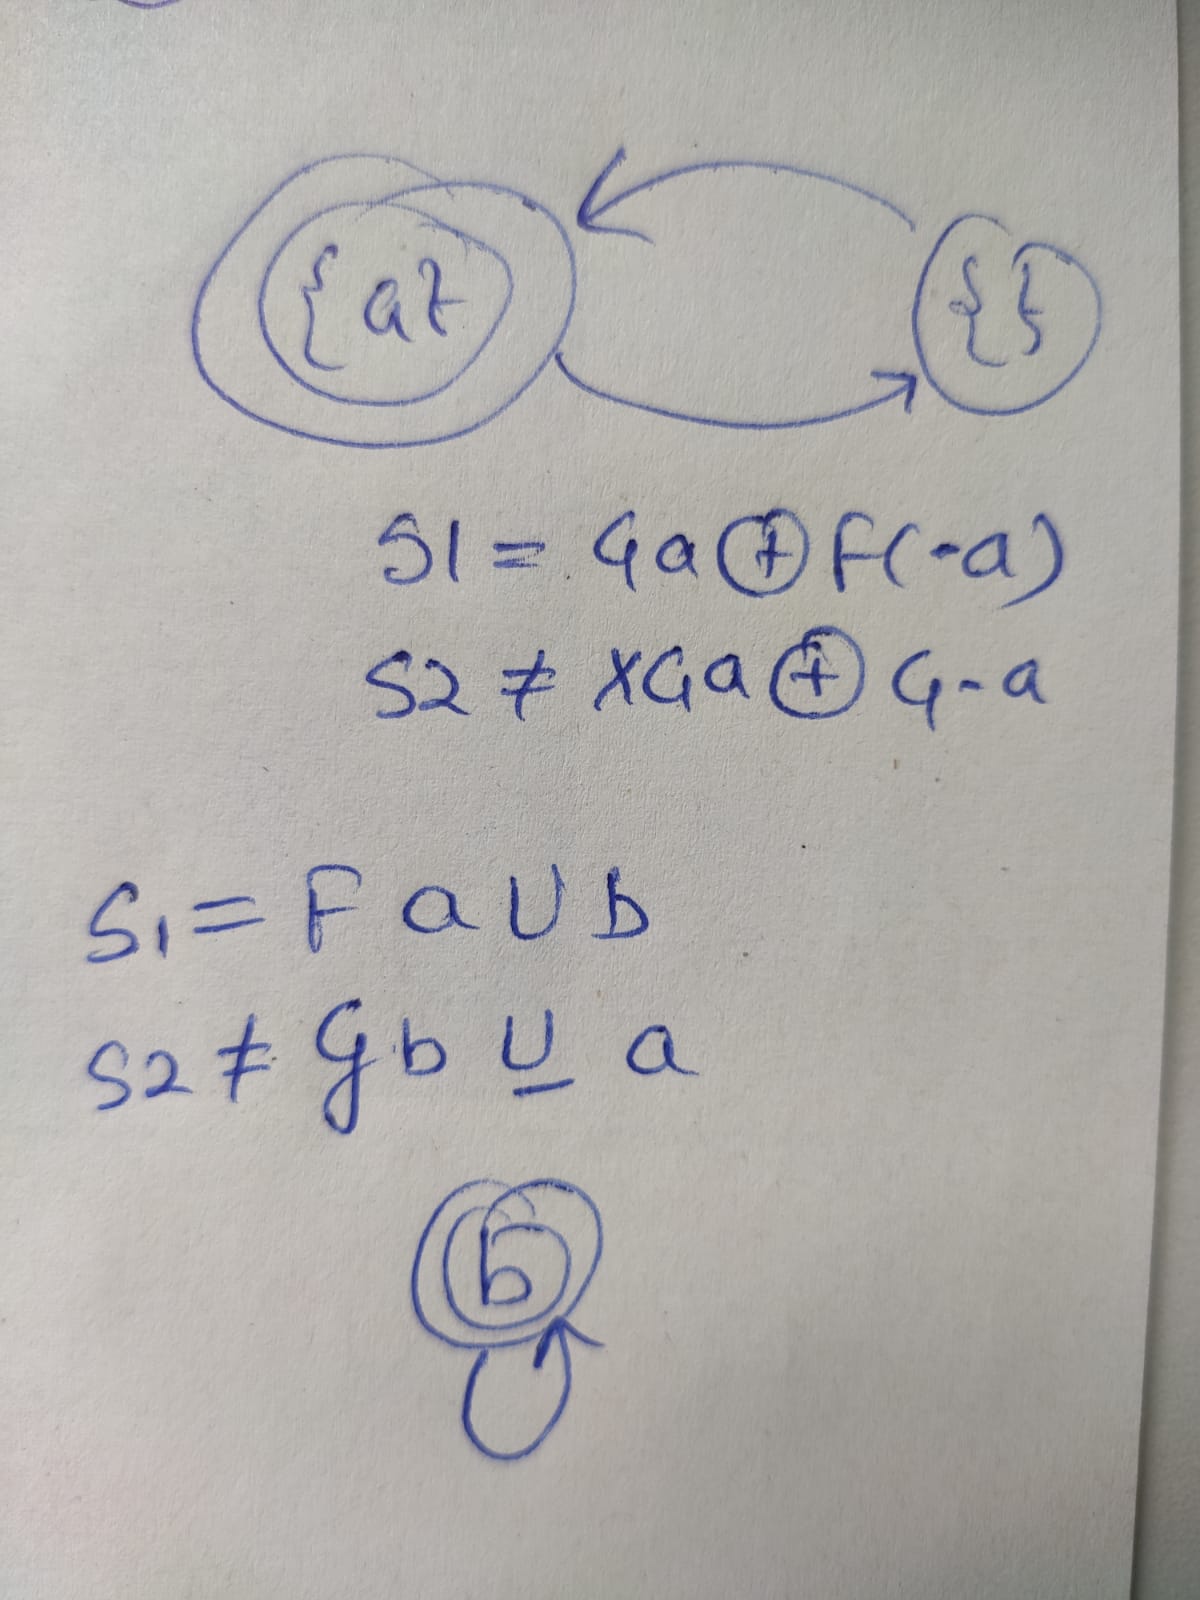 {a}
{}
S1 = Ga ⊕ F(-a)
S2 ≠ XGa ⊕ G-a
S1 = F a U b
S2 ≠ G b U a
b